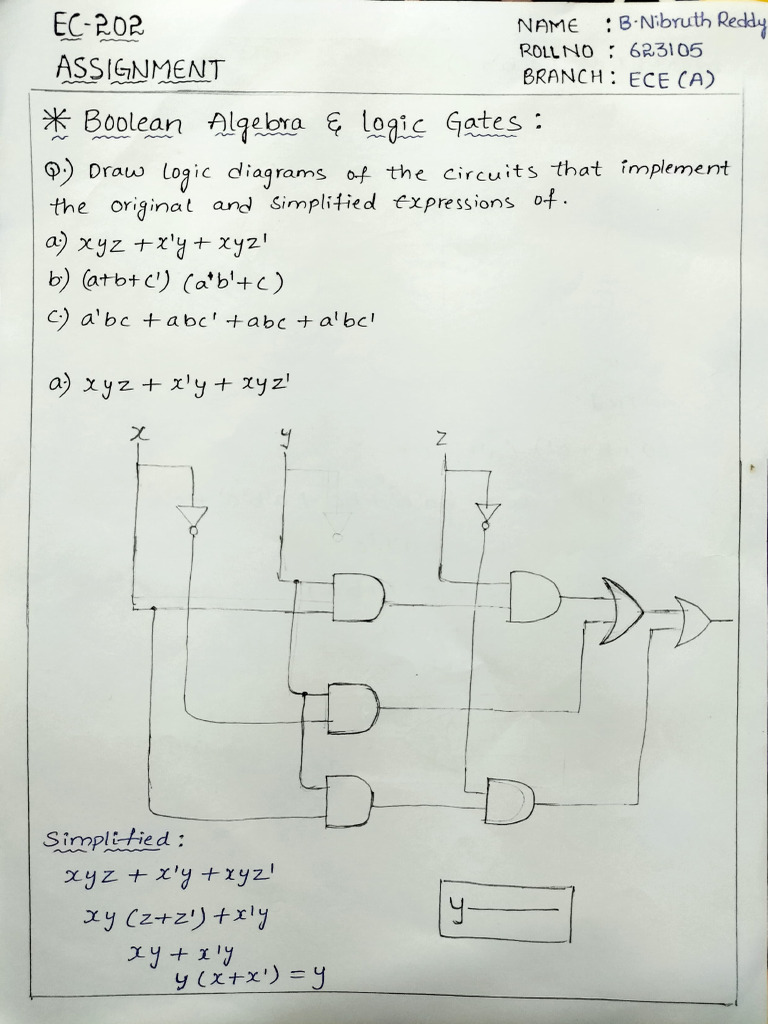 EC-202
ASSIGNMENT
NAME : B.Nibruth Reddy
ROLLNO : 623105
BRANCH : ECE (A)
* Boolean Algebra & Logic Gates :
Q.) Draw Logic diagrams of the circuits that implement
the original and simplified Expressions of.
a.) xyz + x'y + xyz'
b.) (a+b+c') (a'b'+c)
c.) a'bc + abc' + abc + a'bc'
a.) xyz + x'y + xyz'
x y z
Simplified :
xyz + x'y + xyz'
xy (z+z') + x'y
xy + x'y
y (x+x') = y
y